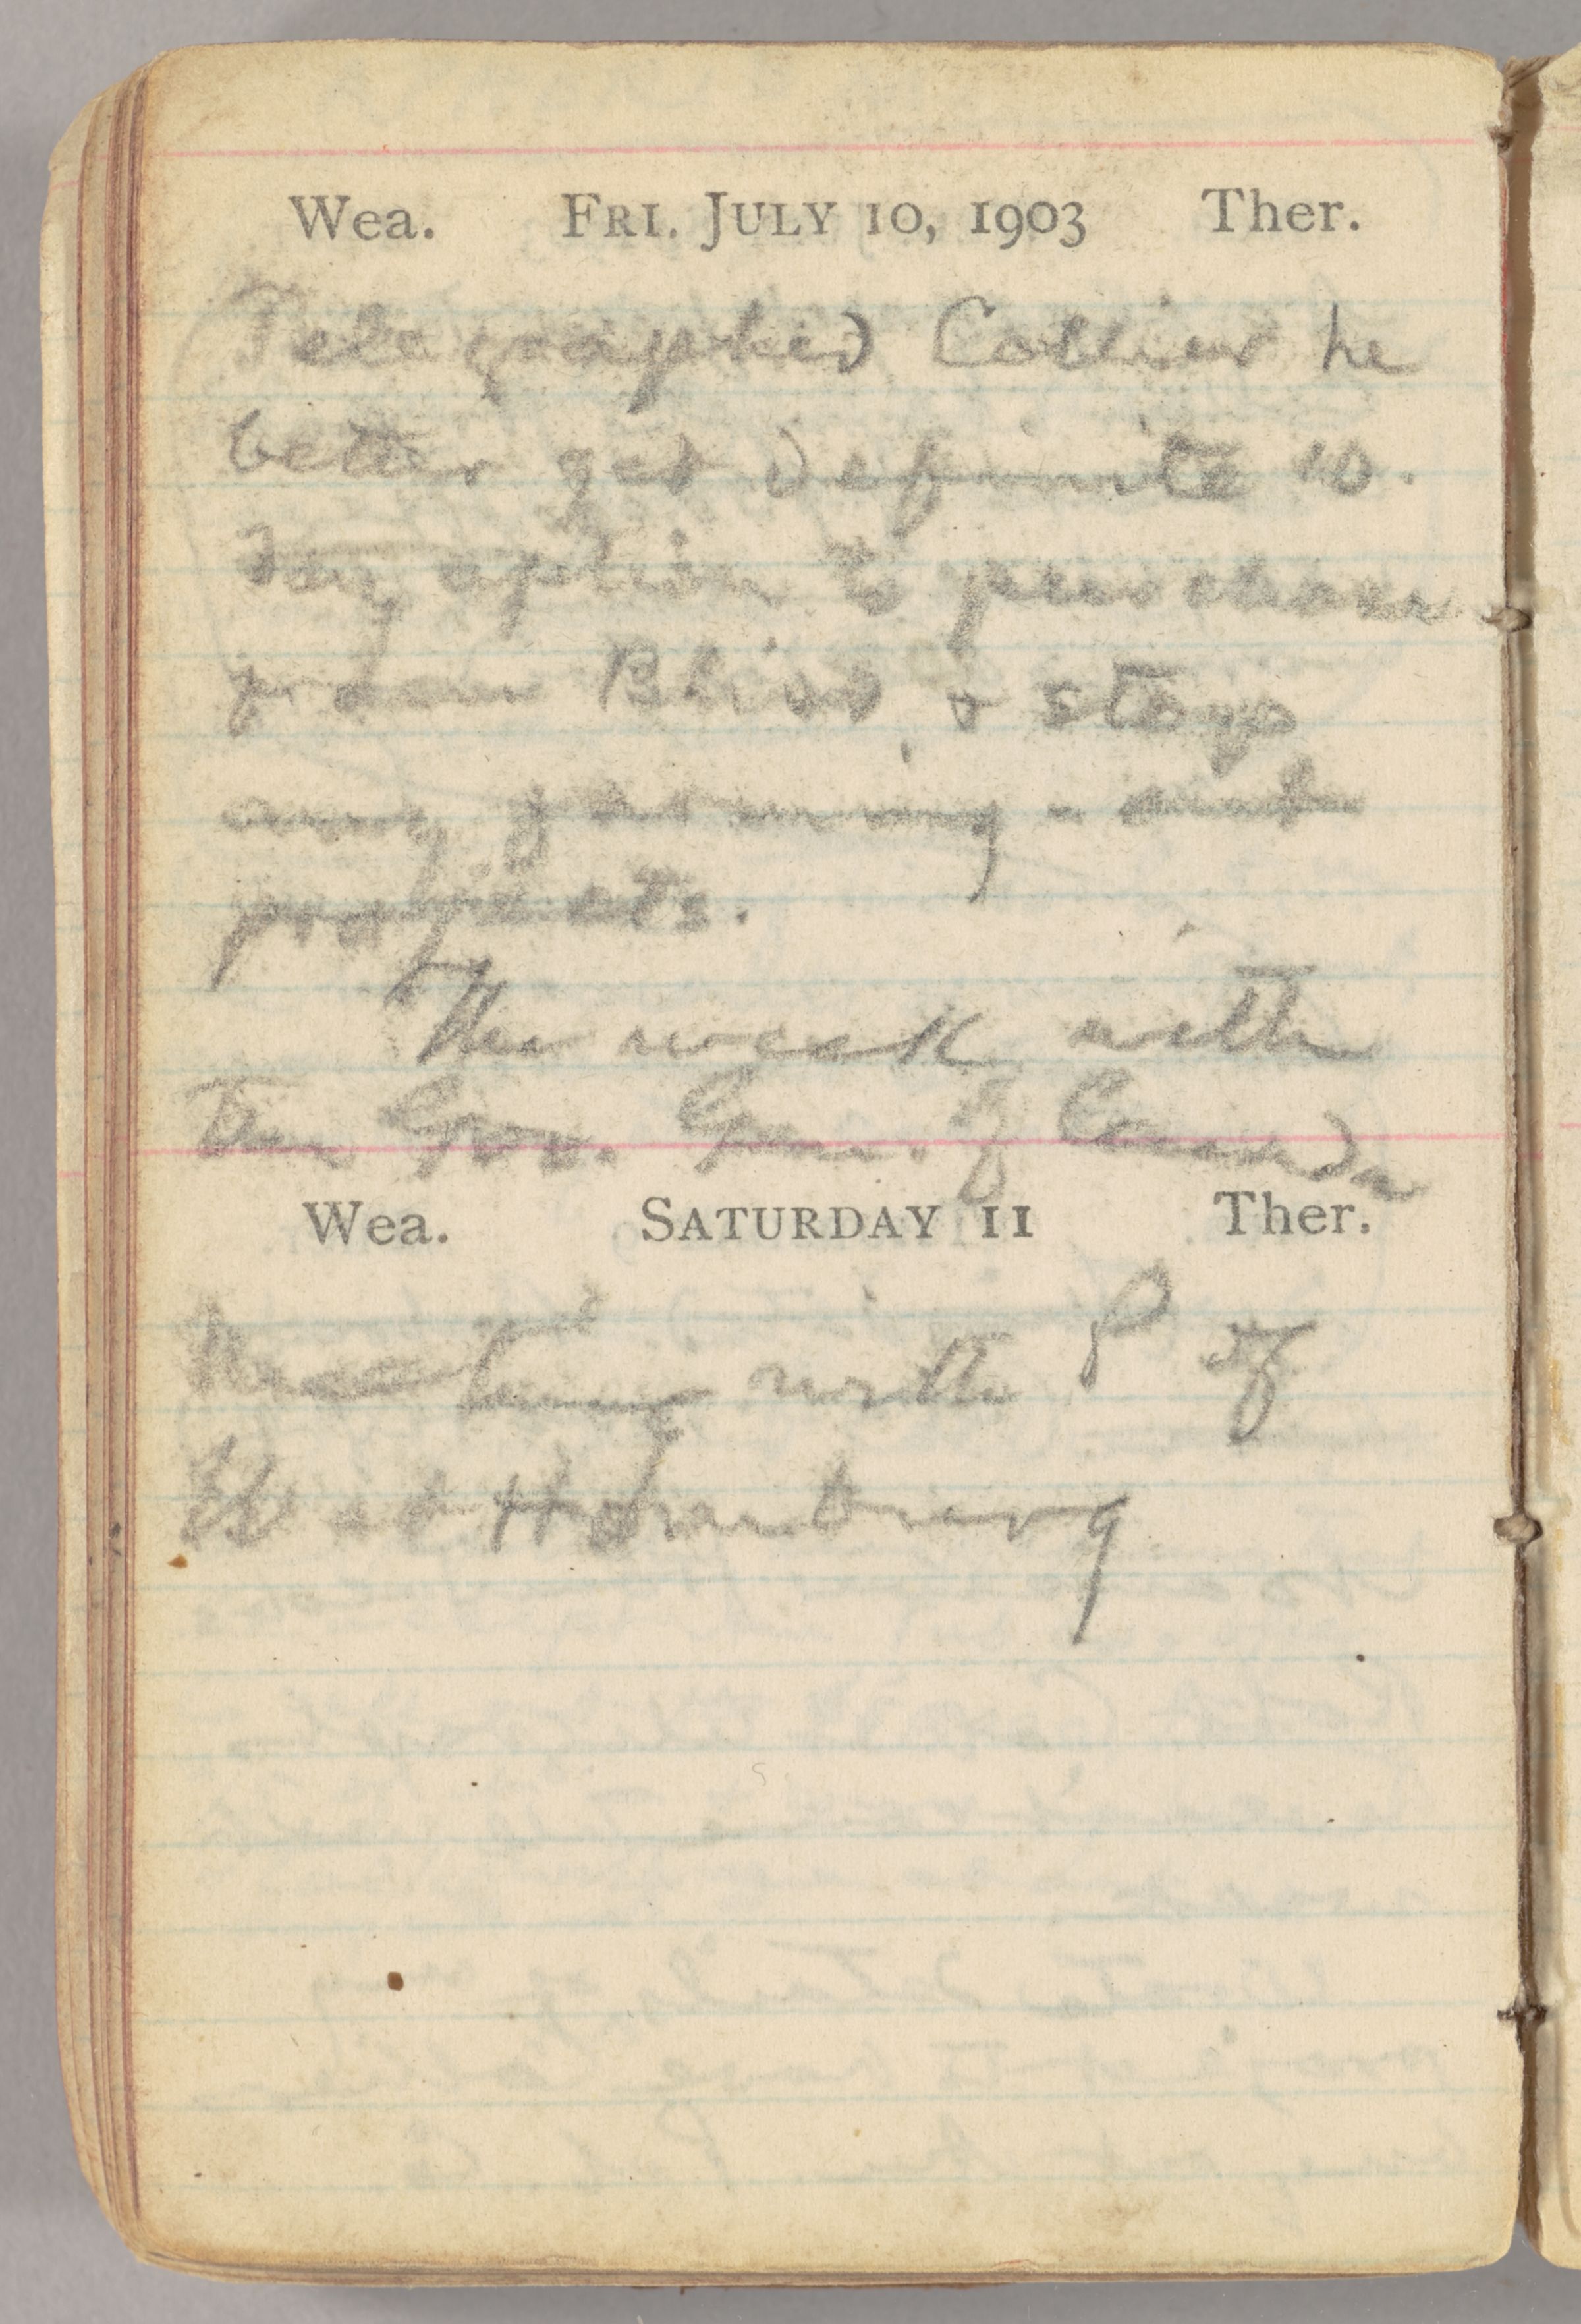 Wea. FRI. JULY 10, 1903 Ther.
Telegraphed Collier he
better get definite 10.
day option to purchase
from Bliss, & stop
any farming-out
projects.
The week with
the Gov. Gen. of Canada
Wea. SATURDAY 11 Ther.
Meeting with P of
W at Homburg